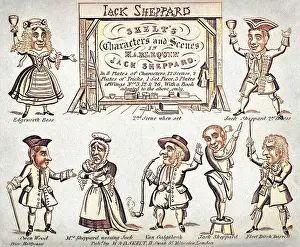 Jack Sheppard
SKELT'S
Characters and Scenes
IN
HARLEQUIN
JACK SHEPPARD
In 8 Plates of Characters, 12 Scenes, 2
Plates of Tricks, 1 Set Piece, 3 Plates
of Wings No 3, 17 & 26, With a Book
to the above only.
Edgeworth Bess
2nd Scene when set
Jack Sheppard 2nd Dress
Owen Wood
Mrs Sheppard nursing Jack
Van Galgebrok
Jack Sheppard
Pubd by M & B. SKELT, 11, Swan St Minories London